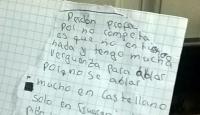 Perdon profa
por no completa
es que no entiendo
nada y tengo mucha
verguenza para ablar
porqno se ablar
mucho en Castellano
solo en Guarani